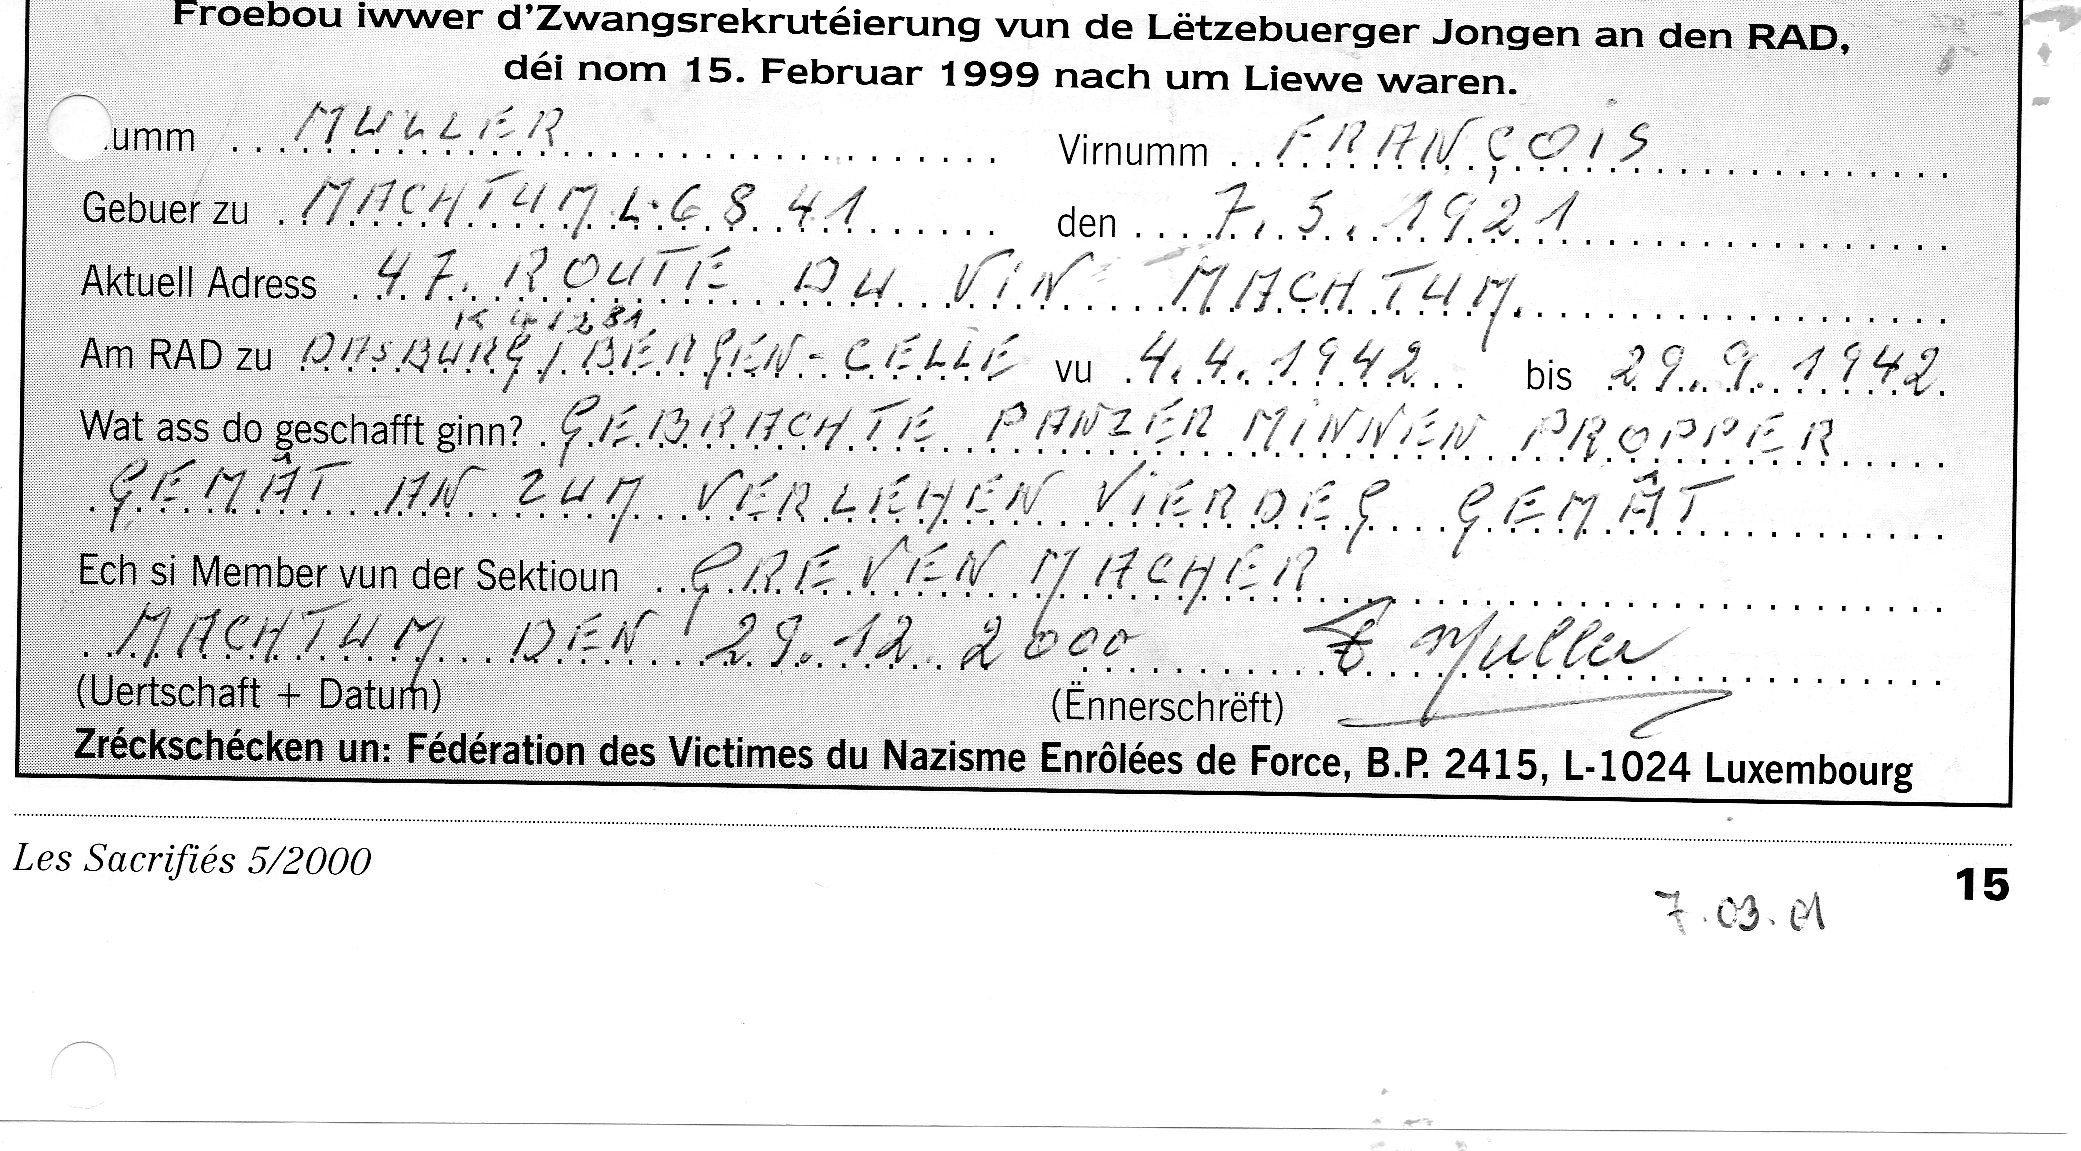 Froebou iwwer d'Zwangsrekrutéierung vun de Lëtzebuerger Jongen an den RAD,
déi nom 15. Februar 1999 nach um Liewe waren.
umm MULLER Virnumm FRANÇOIS
Gebuer zu MACHTUM L-6841 den 7.5.1921
Aktuell Adress 47. ROUTE DU VIN MACHTUM.
K 4/281
Am RAD zu DASBURG / BERGEN-CELLE vu 4.4.1942 bis 29.9.1942
Wat ass do geschafft ginn? GEBRACHTE PANZER MINNEN PROPPER
GEMÂT AN ZUM VERLEHEN VIERDEG GEMÂT
Ech si Member vun der Sektioun GREVENMACHER
MACHTUM DEN 29.12.2000 F Muller
(Uertschaft + Datum) (Ënnerschrëft)
Zréckschécken un: Fédération des Victimes du Nazisme Enrôlées de Force, B.P. 2415, L-1024 Luxembourg
Les Sacrifiés 5/2000 15
7.03.01